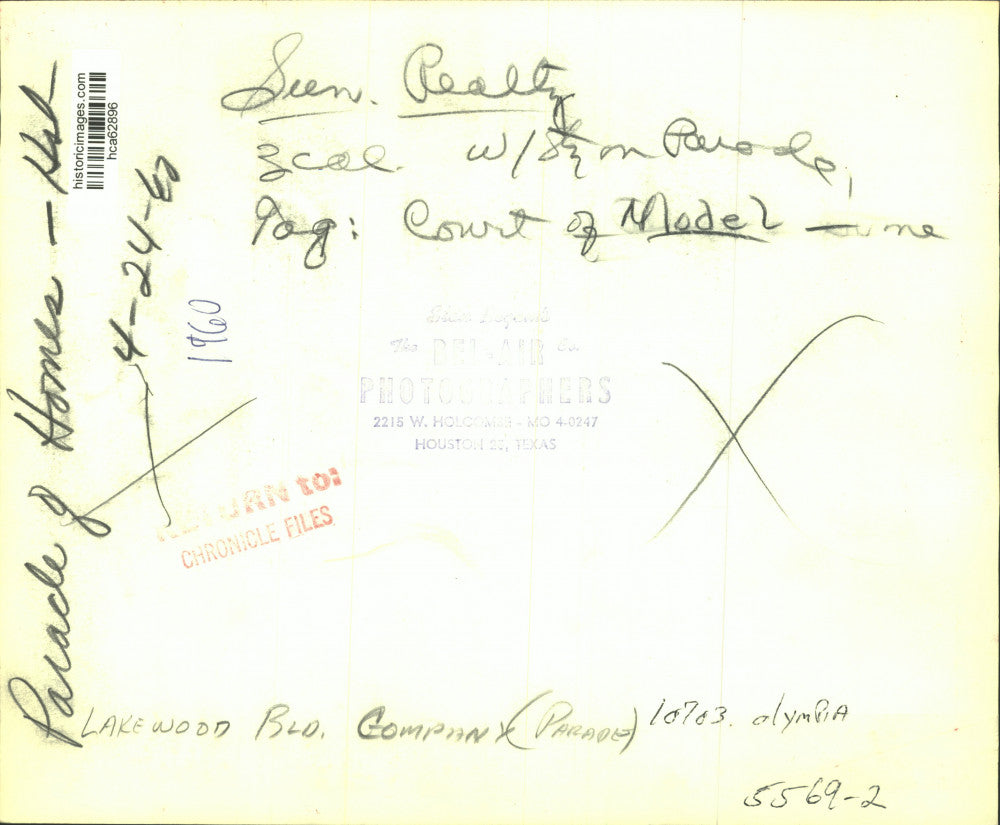 Sun. Realty
3 col. w/ on Parade,
Tag: Court of Model
historicimages.com
hca62896
Parade of Homes – Hst
4-24-60
1960
The BEL-AIR Co.
PHOTOGRAPHERS
2215 W. HOLCOMBE - MO 4-0247
HOUSTON 25, TEXAS
RETURN to:
CHRONICLE FILES
LAKEWOOD BLD. COMPANY (PARADE) 10703. OlymPiA
5569-2